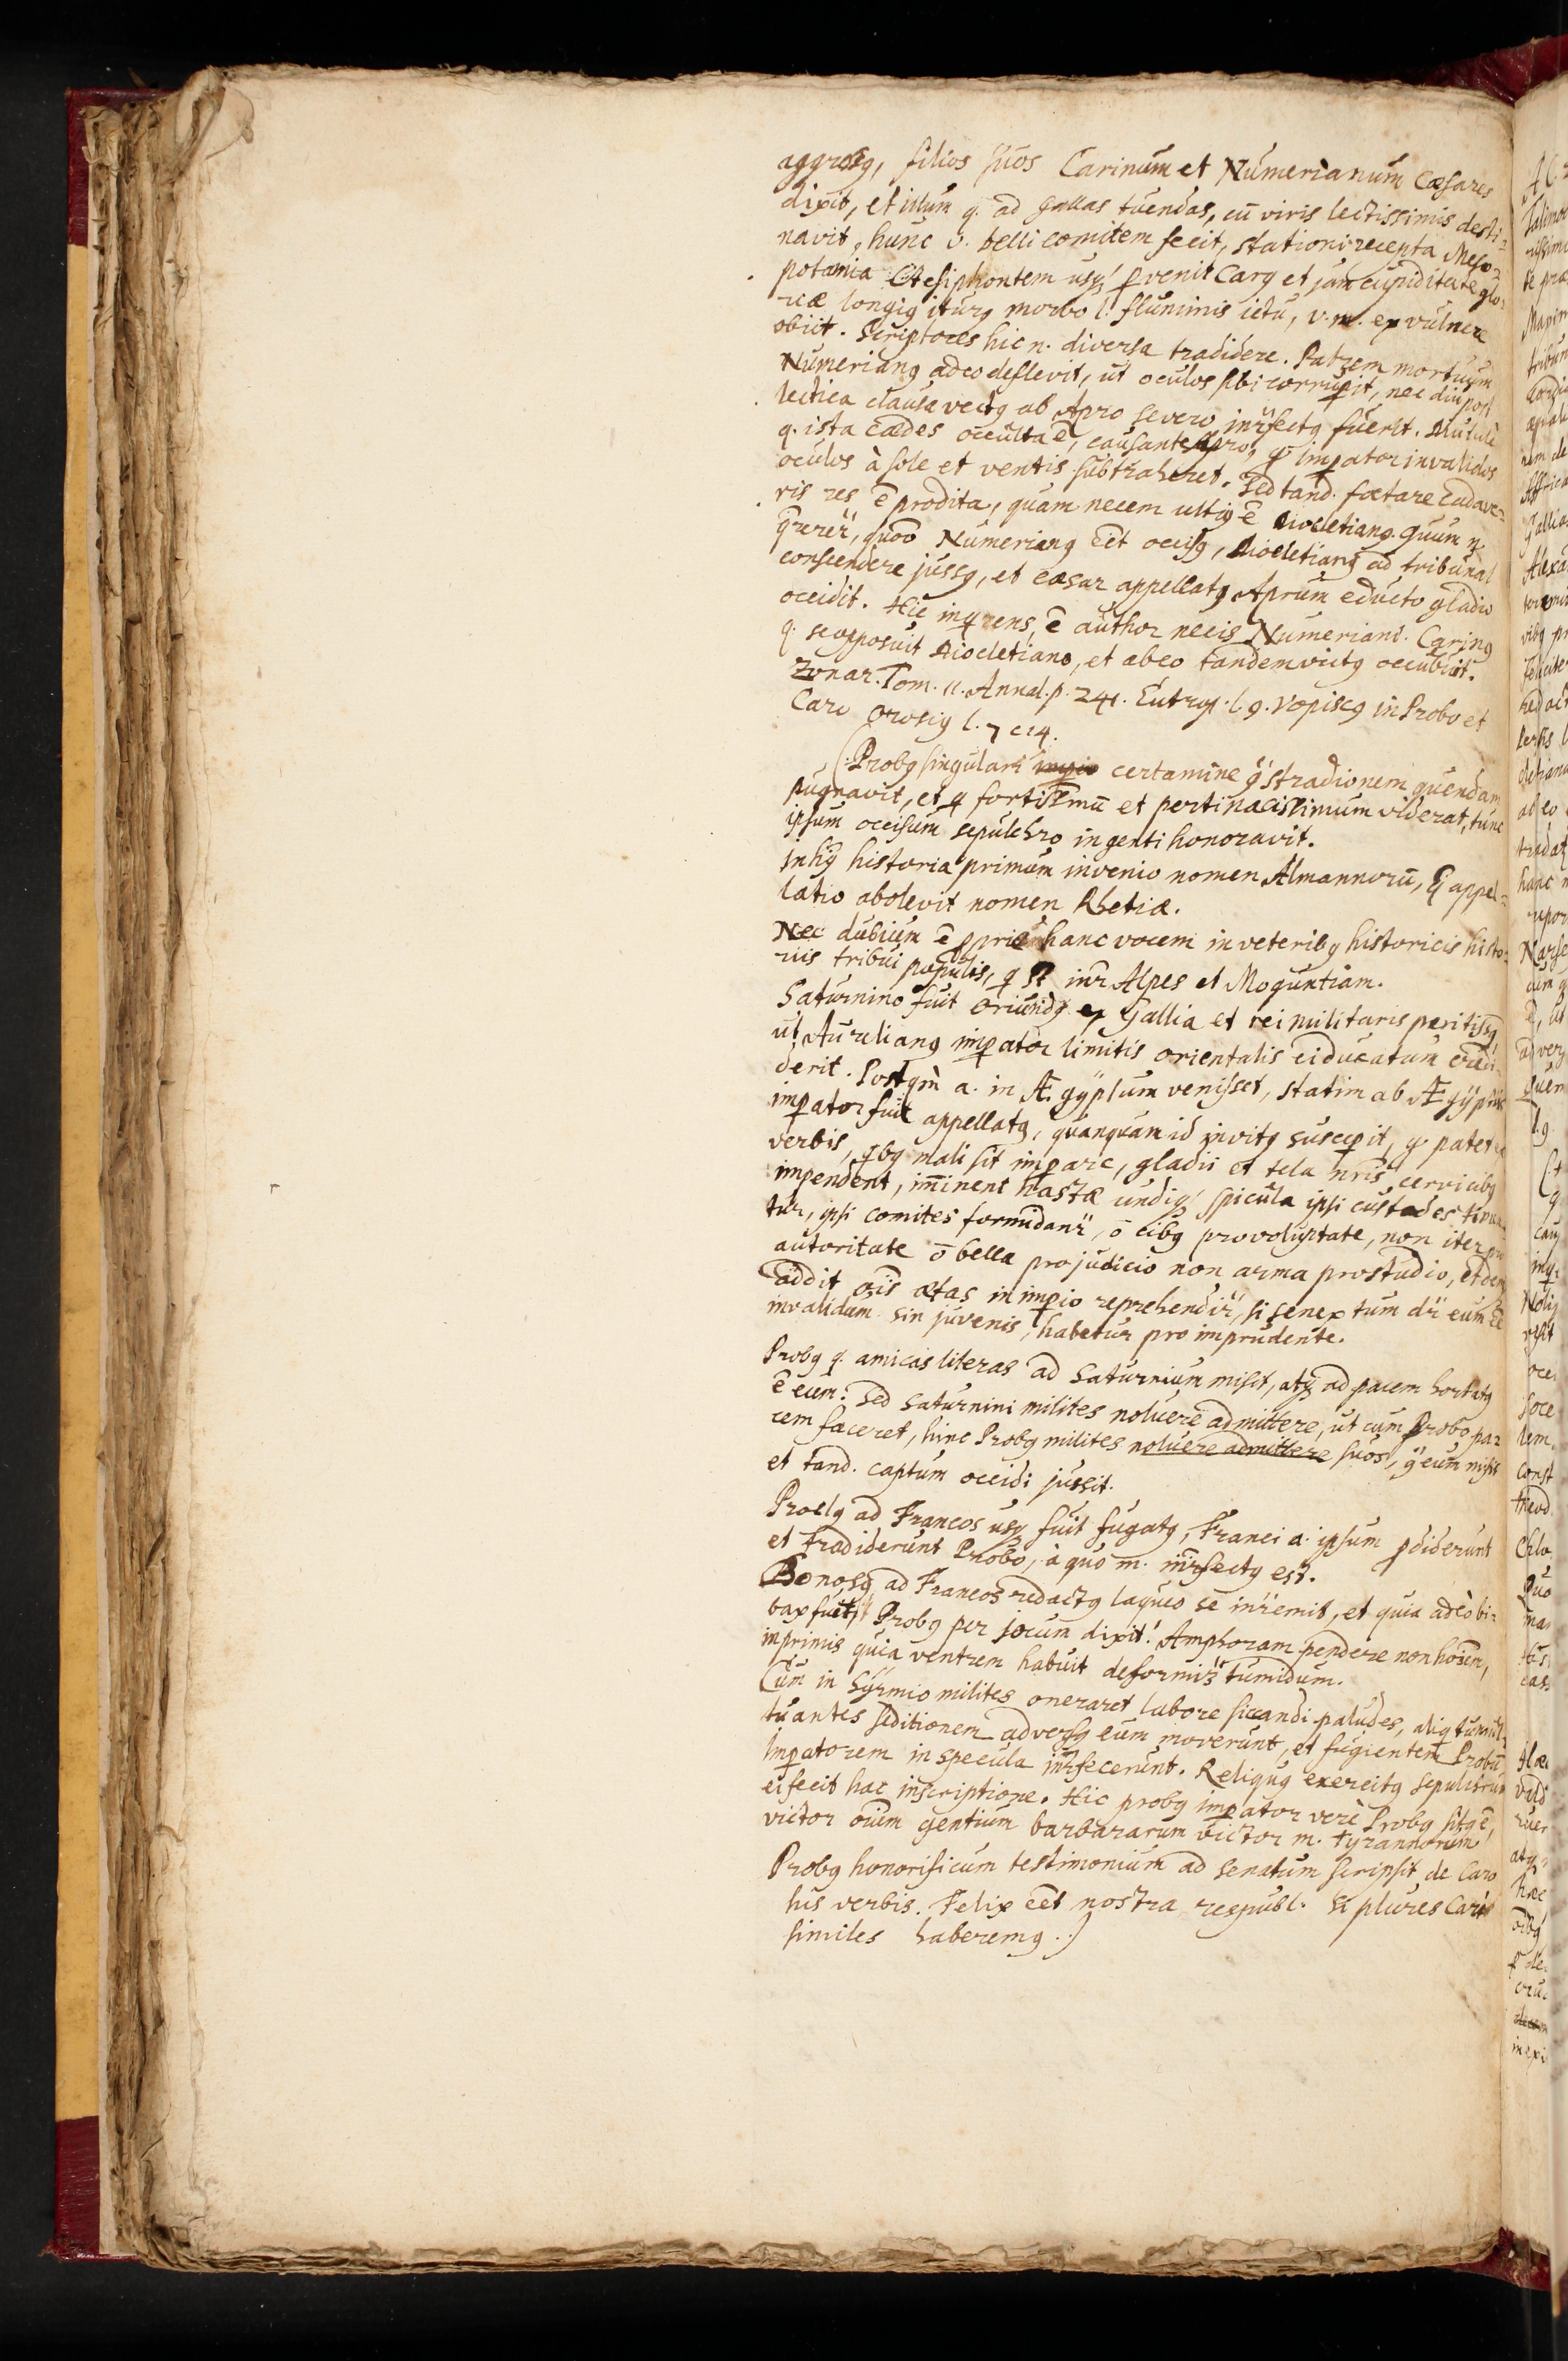 aggressꝯ, filios suos Carinum et Numerianum Cæsares
dixit, et illum q. ad Gallas tuendas, cū viris lectissimis desti-
navit, hunc v. belli comitem fecit, stationi recepta Meso-
potamia Ctesiphontem usqꝫ pvenit Carꝯ et jam cupiditate glo-
riæ longiꝯ iturꝯ morbo l. fluminis ictu, v.m. ex vulnere
obiit. Scriptores hic n. diversa tradidere. Patrem mortuum
Numerianꝯ adeo deflevit, ut oculos sibi corrupit, nec diu post
lectica clausa vectꝯ ab Apro Severo inr̄fectꝯ fuerit.
q. ista cædes occulta ē, causante Apro, qꝫ impator invalidos
oculos à sole et ventis subtraheret. Sed tand. fœtare cadave-
ris res ē prodita, quam necem ultiꝯ ē Diocletianꝯ. Quum n.
q̄rerer̄, quoo Numerianꝯ eēt occisꝯ, Diocletianꝯ ad tribunal
conscendere jussꝯ, et cæsar appellatꝯ Aprum educto gladio
occidit. Hic inqrens, ē author necis Numeriani. Carinꝯ
q. se opposuit Diocletiano, et ab eo tandem victꝯ occubuit.
Zonar. Tom. 11. Annal. p. 241. Eutrop. l. 9. Vopiscꝯ in Probo et
Caro Orosiꝯ l. 7 c 24.
(: Probꝯ singulari impio certamine g̃ stradionem quendam
pugnavit, et q fortissimū et pertinacissimum viderat, tunc
ipsum occisum sepulchro ingenti honoravit.
In hꝯ historia primum invenio nomen Almannorū, q̄ appel-
latio abolevit nomen Rhetiæ.
Nec dubium ē pprie hanc vocem in veteribꝯ historicis histo-
riis tribui populis, q st̄ inr̄ Alpes et Moguntiam.
Saturnino fuit oriundꝯ ex Gallia et rei militaris peritissꝯ
ut Aurelianꝯ impator limitis orientalis ei ducatum credi-
derit. Postqm̄ a. in Ægÿptum venisset, statim ab Ægÿptiis
impator fuit appellatꝯ, quanquam id invitꝯ suscepit, qꝫ patet ex
verbis, qbꝯ mali sit impare, gladii et tela nr̄is cervicibꝯ
impendent, im̄inent hastæ undiqꝫ spicula ipsi custodes timen-
tur, ipsi comites formidanr̄, ō cibꝯ pro voluptate, non iter pro
autoritate ō bella pro judicio non arma pro studio,
addit om̄is ætas in impio reprehendir̄, si senex tum dr̄ eum eē
invalidum sin juvenis, habetur pro imprudente.
Probꝯ q. amicas literas ad Saturnium misit, atqꝫ ad pacem hortatꝯ
ē eum: Sed Saturnini milites noluere admittere, ut cum Probo pa-
cem faceret, hinc Probꝯ milites noluere admittere suos, g̃ eum misit
et tand. captum occidi jussit.
Proclꝯ ad Francos usqꝫ fuit fugatꝯ, Franci a. ipsum pdiderunt
et tradiderunt Probo, à quo m. inr̄fectꝯ est.
Bonosꝯ, ad Francos redactꝯ laqueo se inr̄emit, et quia adeò bi-
bax fuit, Probꝯ per jocum dixit! Amphoram pendere non hoīen,
inprimis quia ventrem habuit deformit̃ tumidum.
Cum in Sÿrmio milites oneraret labore siccandi paludes, aliq tumul-
tuantes seditionem adversꝯ eum moverunt, et fugientem Probū
Impatorem in specula inr̄fecerunt. Reliquꝯ exercitꝯ sepulchrum
ei fecit hac inscriptione. Hic probꝯ impator verè Probꝯ sitꝯ ē,
victor oīum gentium barbararum victor m. tyrannorum
Probꝯ honorificum testimonium ad senatum scripsit de Caro
his verbis. Felix eēt nostra respubl. Si plures Caris
similes haberemꝯ .:)